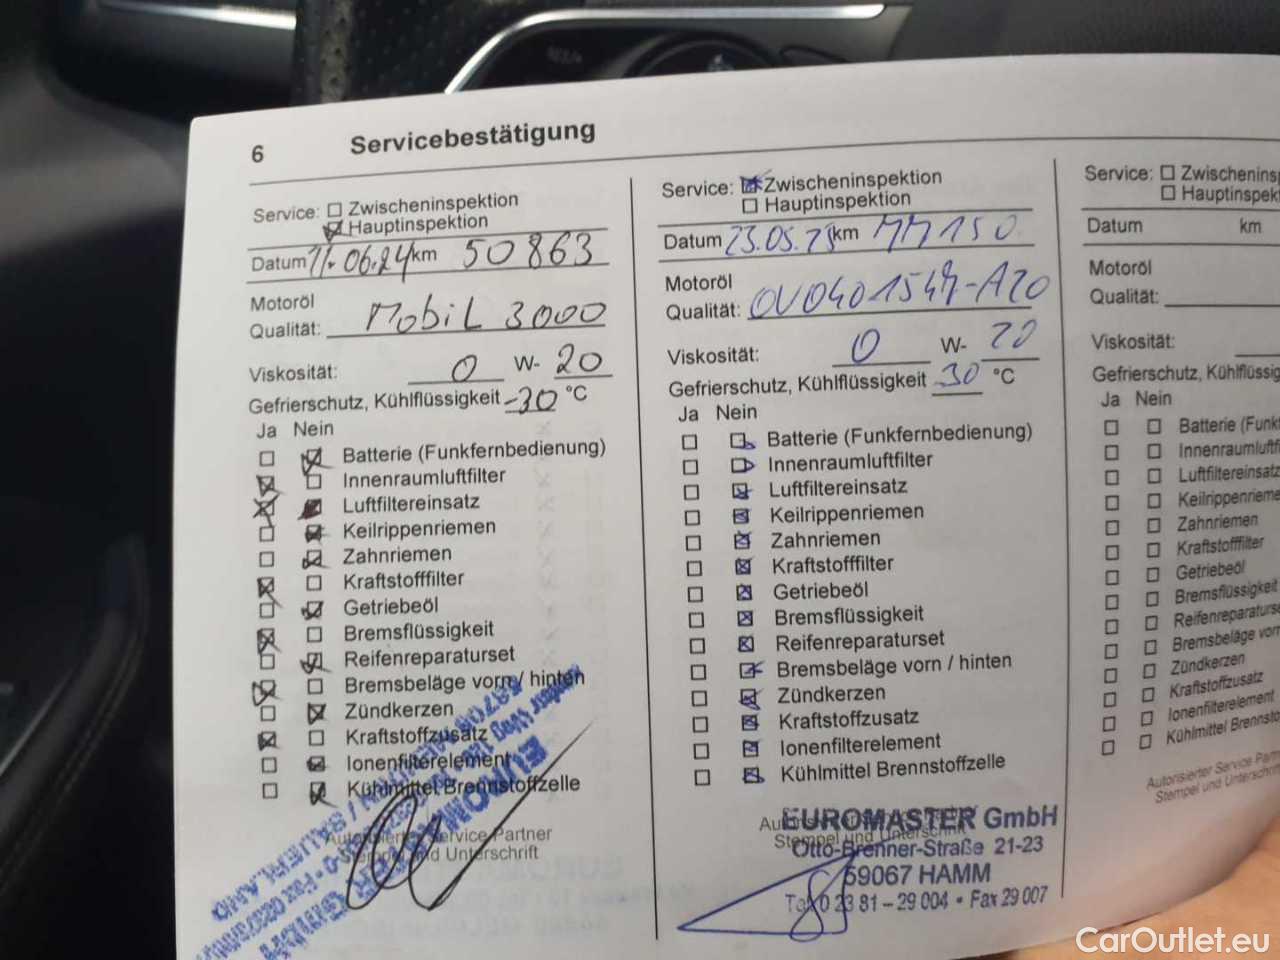 6 Servicebestätigung
Service: Zwischeninspektion
Hauptinspektion
Datum 11.06.24 km 50863
Motoröl
Qualität: Mobil 3000
Viskosität: 0 W- 20
Gefrierschutz, Kühlflüssigkeit -30 °C
Ja Nein
Batterie (Funkfernbedienung)
Innenraumluftfilter
Luftfiltereinsatz
Keilrippenriemen
Zahnriemen
Kraftstofffilter
Getriebeöl
Bremsflüssigkeit
Reifenreparaturset
Bremsbeläge vorn / hinten
Zündkerzen
Kraftstoffzusatz
Ionenfilterelement
Kühlmittel Brennstoffzelle
Autorisierter Service Partner
Stempel und Unterschrift
Service: Zwischeninspektion
Hauptinspektion
Datum 23.05.25 km
Motoröl
Qualität:
Viskosität: 0 W- 20
Gefrierschutz, Kühlflüssigkeit -30 °C
Ja Nein
Batterie (Funkfernbedienung)
Innenraumluftfilter
Luftfiltereinsatz
Keilrippenriemen
Zahnriemen
Kraftstofffilter
Getriebeöl
Bremsflüssigkeit
Reifenreparaturset
Bremsbeläge vorn / hinten
Zündkerzen
Kraftstoffzusatz
Ionenfilterelement
Kühlmittel Brennstoffzelle
Stempel und Unterschrift
EUROMASTER GmbH
Otto-Brenner-Straße 21-23
59067 HAMM
Tel. 0 23 81 – 29 004 • Fax 29 007
Service: Zwischeninsp
Hauptinspek
Datum km
Motoröl
Qualität:
Viskosität:
Gefrierschutz, Kühlflüssig
Ja Nein
Batterie (Funk
Innenraumluftfi
Luftfiltereinsatz
Keilrippenrieme
Zahnriemen
Kraftstofffilter
Getriebeöl
Bremsflüssigkeit
Reifenreparaturse
Bremsbeläge vorn
Zündkerzen
Kraftstoffzusatz
Ionenfilterelement
Kühlmittel Brennsto
Autorisierter Service Part
Stempel und Unterschrift
CarOutlet.eu